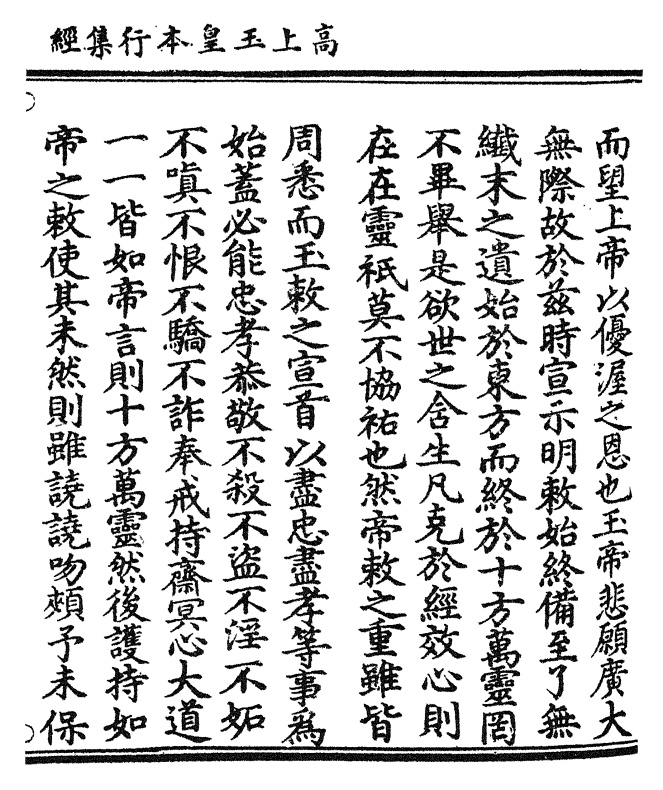 高上玉皇本行集經
而望上帝以優渥之恩也玉帝悲願廣大
無際故於茲時宣示明敕始終備至了無
纖末之遺始於東方而終於十方萬靈罔
不畢舉是欲世之含生凡克於經效心則
在在靈祇莫不協祐也然帝敕之重雖皆
周悉而玉敕之宣首以盡忠盡孝等事爲
始蓋必能忠孝恭敬不殺不盜不淫不妬
不嗔不恨不驕不詐奉戒持齋冥心大道
一一皆如帝言則十方萬靈然後護持如
帝之敕使其未然則雖譊譊吻頰予未保